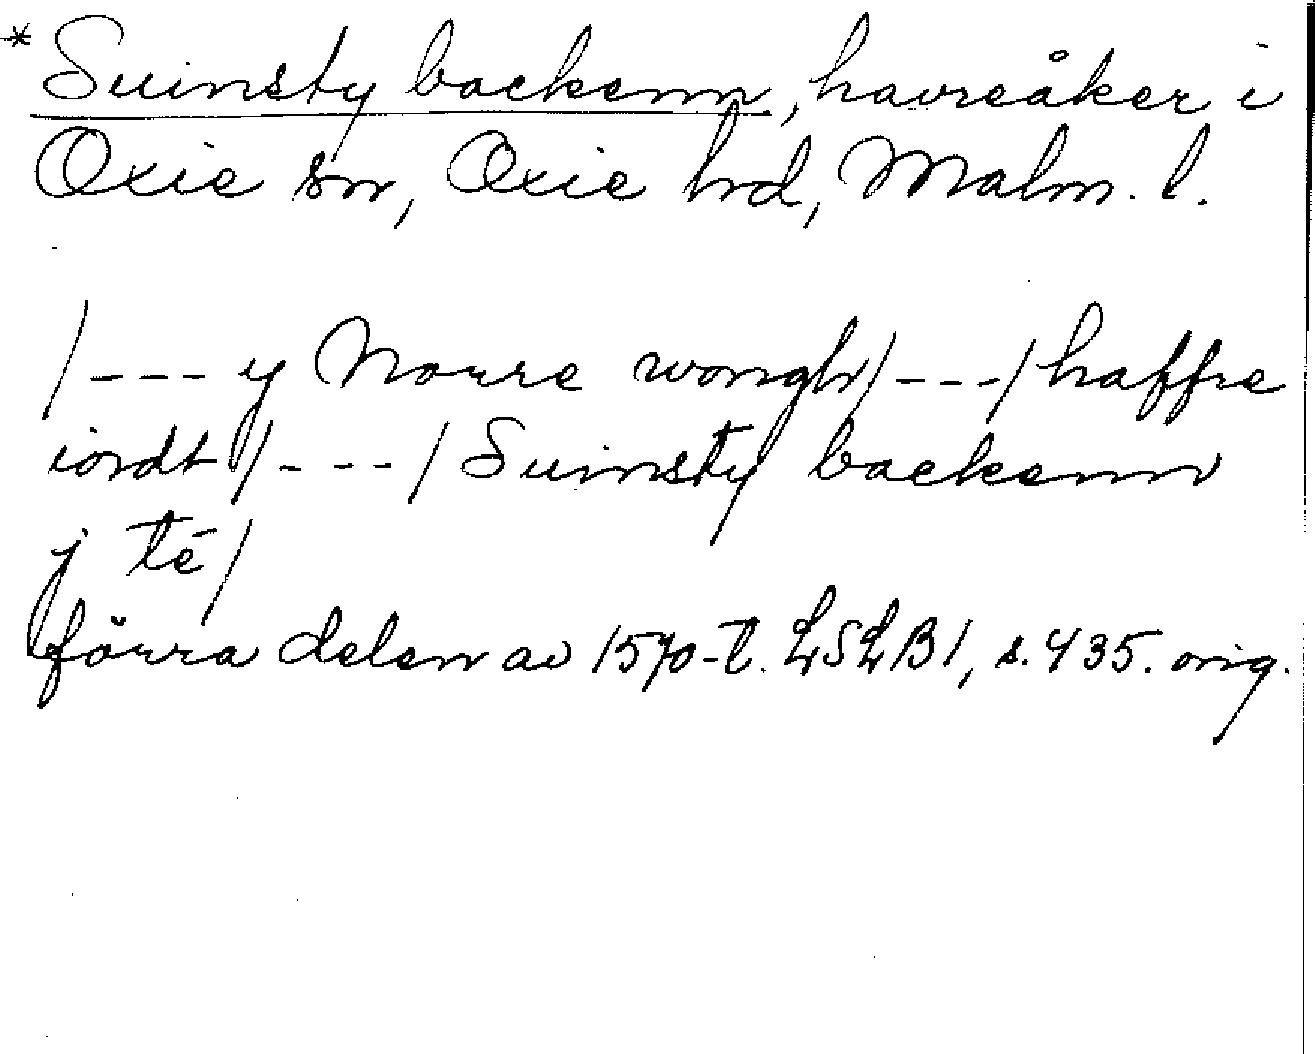 * Suinsty backenn, havreåker i
Oxie sn, Oxie hd, Malm. l.
/--- y Norre wongh/---/ haffre
iordt /---/ Suinsty backenn
j té/
förra delen av 1570-t. LSLB1, s. 435. orig.